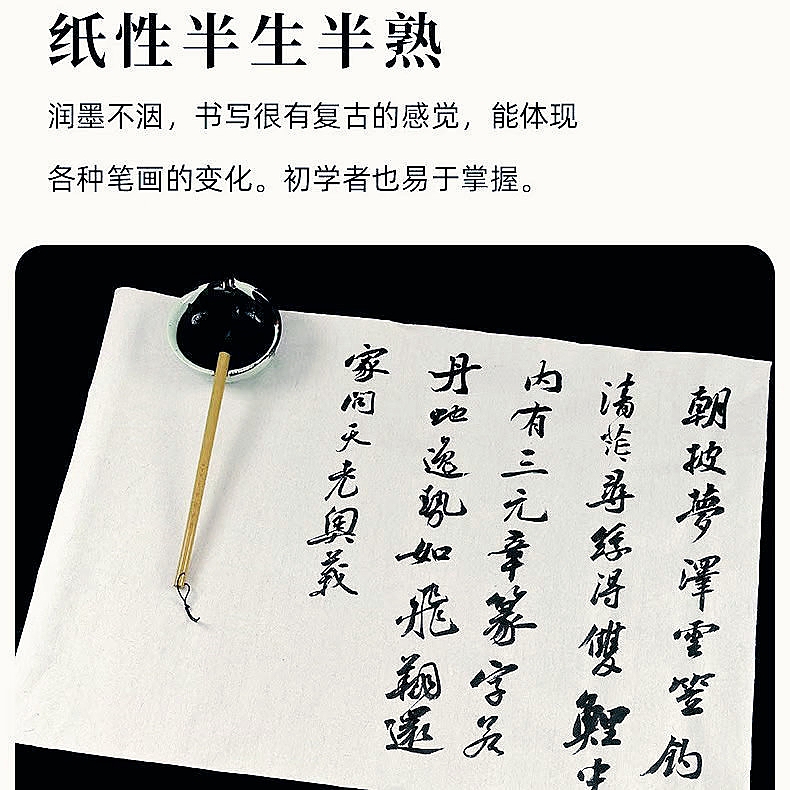 纸性半生半熟
润墨不洇，书写很有复古的感觉，能体现
各种笔画的变化。初学者也易于掌握。
朝披夢澤雲笠釣
清茫々尋絲得雙鯉中
内有三元章篆字若
丹虵逸勢如飛翔還
家問天老奧義